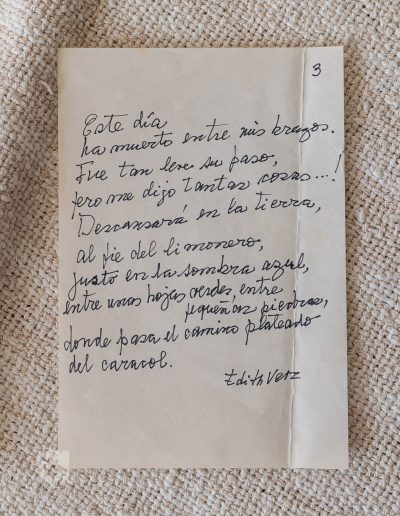 3
Este día
ha muerto entre mis brazos.
Fue tan leve su paso,
pero me dijo tantas cosas...!
Descansará en la tierra,
al pie del limonero,
justo en la sombra azul,
entre unas hojas verdes, entre
pequeñas piedras,
donde pasa el camino plateado
del caracol.
Edith Vera